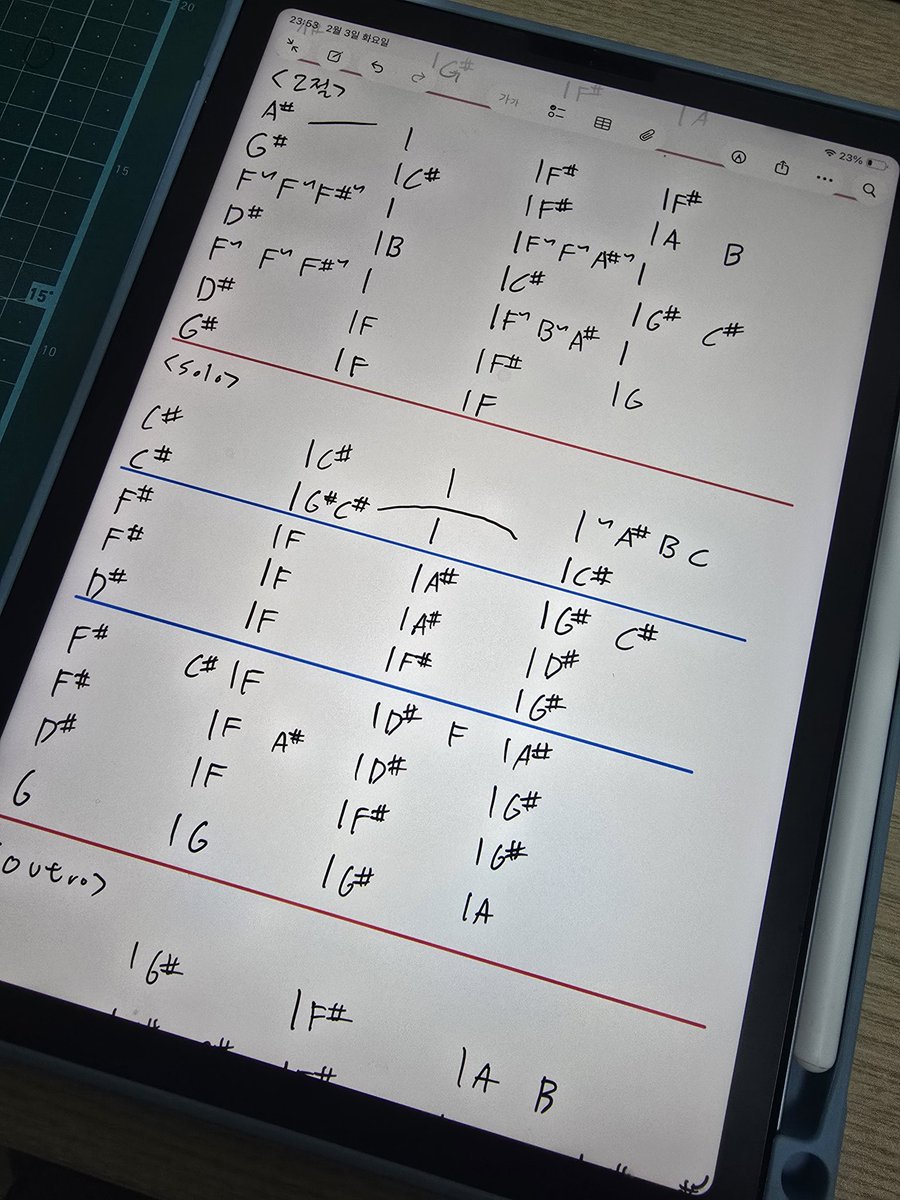 23:53 2월 3일 화요일 23%
|G# |F# |A
가가
<2절>
A# — | |F# |F#
G# |C# |F# |A B
F~F~F#~ | |F~F~A#~ |
D# |B |C# |G# C#
F~ F~F#~ | |F~B~A# |
D# |F |F# |G
G# |F |F
<solo>
C# |C# | |~A# B C
C# |G#C# | |C#
F# |F |A# |G# C#
F# |F |A# |D#
D# |F |F# |G#
F# C# |F |D# F |A#
F# |F A# |D# |G#
D# |F |F# |G#
G |G |G# |A
<outro>
|G# |F# |A B
20
15
15°
10